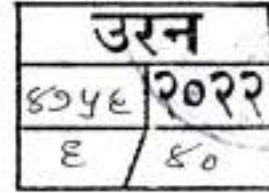 उरन
४७५६ २०२२
६ / ४०